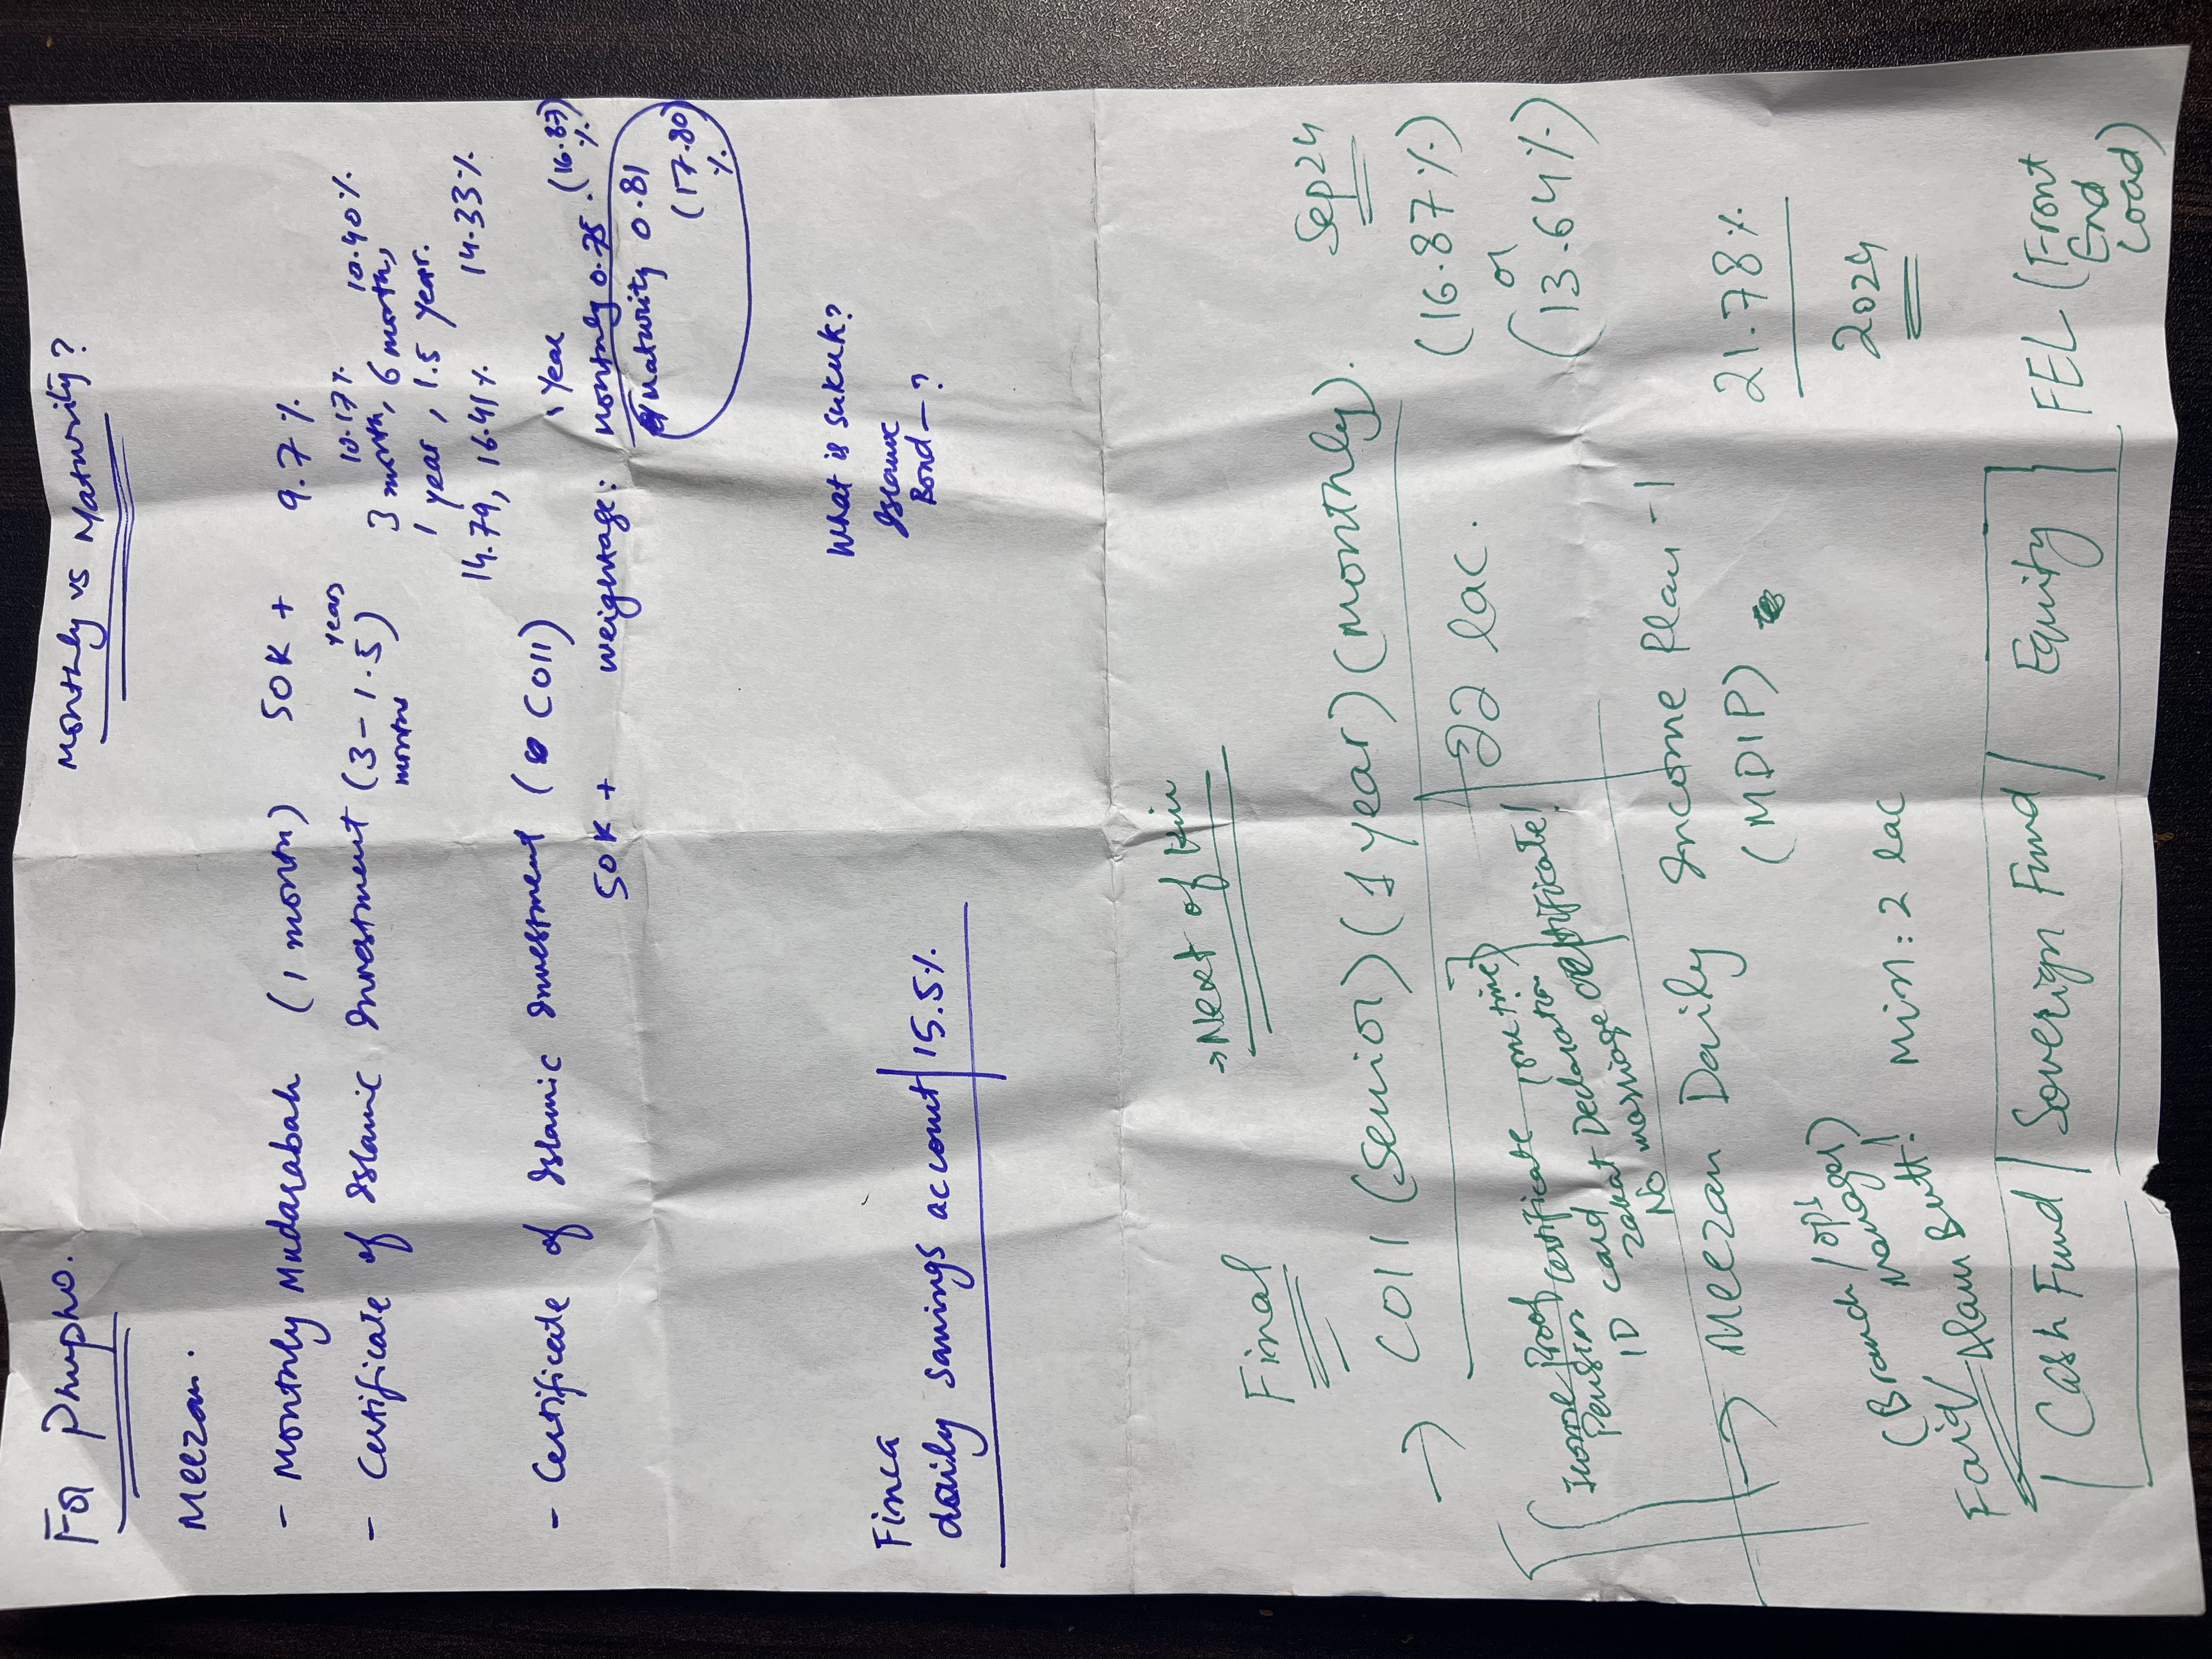 For Phupho.
Monthly vs Maturity?
Meezan.
- Monthly Mudarabah (1 month) 50K + 9.7%
- Certificate of Islamic Investment (3 - 1.5) years
months
10.17% 10.40%
3 month, 6 month,
1 year, 1.5 year.
14.79, 16.41% 14.33%
- Certificate of Islamic Investment (COII) 1 Year
50K + weightage: monthly 0.75. (16.87%)
maturity 0.81
(17.80%)
What is Sukuk?
Islamic
Bond — ?
Finca
daily savings account | 15.5%
→ Next of Kin
Final
Sep 24
→ COII (Senior) (1 year) (Monthly).
(16.87%)
or
(13.64%)
22 lac.
Income Proof Certificate (one time)
Pension card Declaration
ID card Zakat
No marriage certificate!
→ Meezan Daily Income Plan - 1
(MDIP)
21.78%
2024
Min: 2 lac
(Branch / op's
Manager)
Farid Alam Butt!
| Cash Fund | Sovereign Fund | Equity | FEL (Front
End
Load)